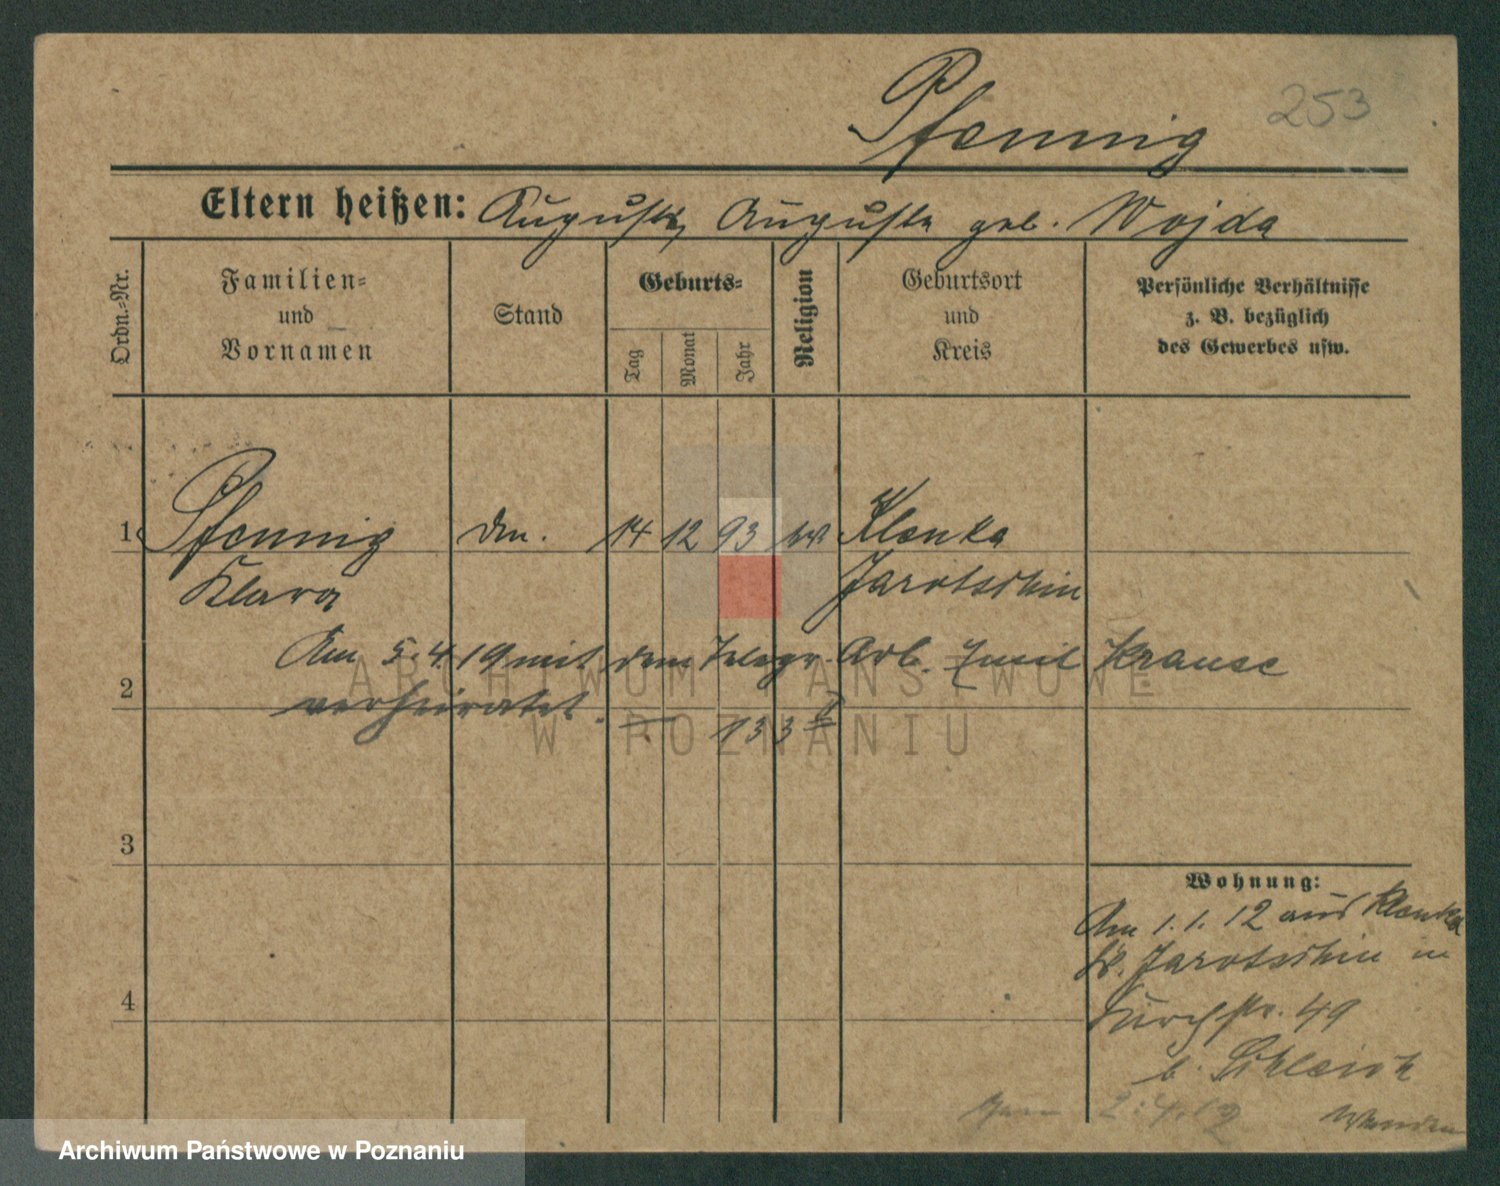 Pfennig 253
Eltern heißen: August, Auguste geb. Wojda
Ordn.-Nr.
Familien-
und
Vornamen
Stand
Geburts-
Tag
Monat
Jahr
Religion
Geburtsort
und
Kreis
Persönliche Verhältnisse
z. B. bezüglich
des Gewerbes usw.
1 Pfennig 14 12 93 Klenka
Klara Jarotschin
Am 5.4.19 mit dem Telegr. Arb. Emil Krause
2
verheiratet. 133
ARCHIWUM PAŃSTWOWE
W POZNANIU
3
Wohnung:
Am 1.1.12 aus Klenka
Kr. Jarotschin in
4
49
b.
2.4.12 Wenden
Archiwum Państwowe w Poznaniu